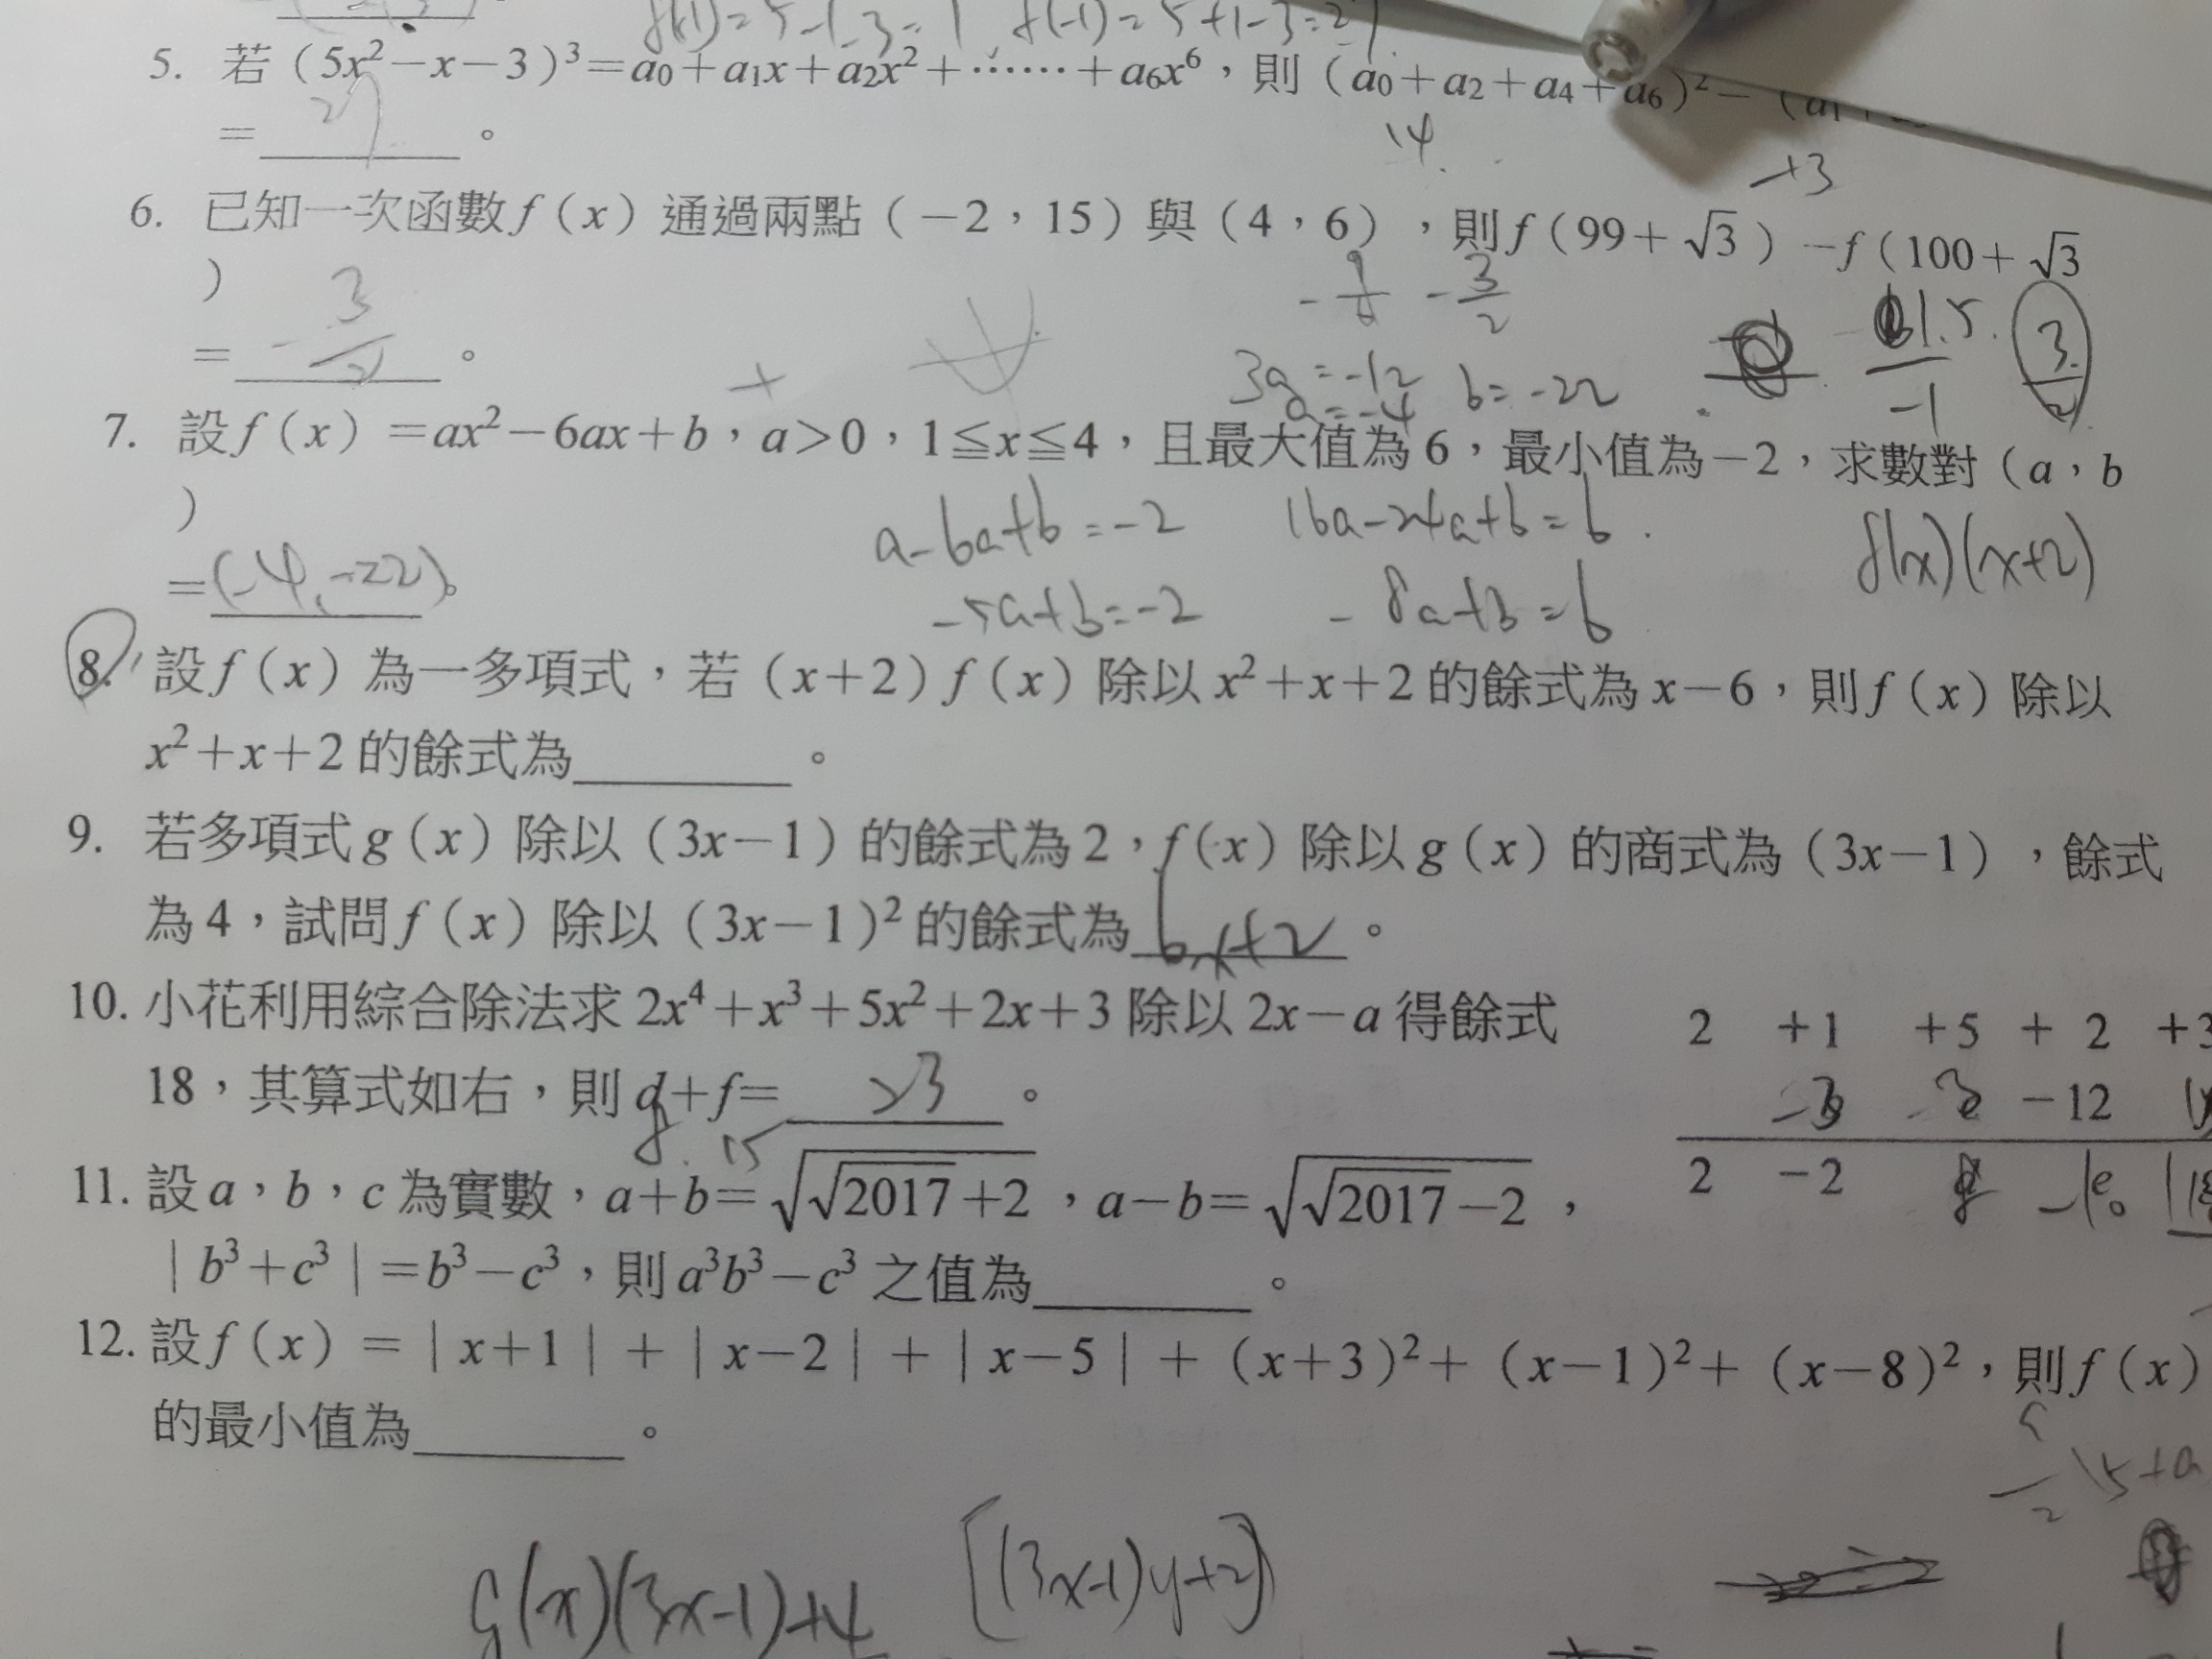 f(1)=5-1-3=1 f(-1)=5+1-3=2
5. 若（5x²－x－3）³＝a₀＋a₁x＋a₂x²＋……＋a₆x⁶，則（a₀＋a₂＋a₄＋a₆）²－（a₁
＝ 27 。
14
+3
6. 已知一次函數 f（x）通過兩點（－2，15）與（4，6），則 f（99＋√3）－f（100＋√3
）
＝ -3/2 。
-9/6 -3/2
1.5/-1 3/2
3a=-12 b=-22
a=-4
7. 設 f（x）＝ax²－6ax＋b，a＞0，1≦x≦4，且最大值為 6，最小值為－2，求數對（a，b
）
＝(-4,-22)。
a-6a+b=-2 16a-24a+b=6
-5a+b=-2 -8a+b=6
f(x)(x+2)
8. 設 f（x）為一多項式，若（x＋2）f（x）除以 x²＋x＋2 的餘式為 x－6，則 f（x）除以
x²＋x＋2 的餘式為 。
9. 若多項式 g（x）除以（3x－1）的餘式為 2，f（x）除以 g（x）的商式為（3x－1），餘式
為 4，試問 f（x）除以（3x－1）² 的餘式為 6x+2 。
10. 小花利用綜合除法求 2x⁴＋x³＋5x²＋2x＋3 除以 2x－a 得餘式
18，其算式如右，則 d＋f＝ 23 。
8. 15
2 ＋1 ＋5 ＋ 2 ＋3
-3 －12
2 －2 8 -10 18
11. 設 a，b，c 為實數，a＋b＝√(√2017＋2)，a－b＝√(√2017－2)，
｜b³＋c³｜＝b³－c³，則 a³b³－c³ 之值為 。
12. 設 f（x）＝｜x＋1｜＋｜x－2｜＋｜x－5｜＋（x＋3）²＋（x－1）²＋（x－8）²，則 f（x）
的最小值為 。
15+a
g(x)(3x-1)+4 [(3x-1)y+2]